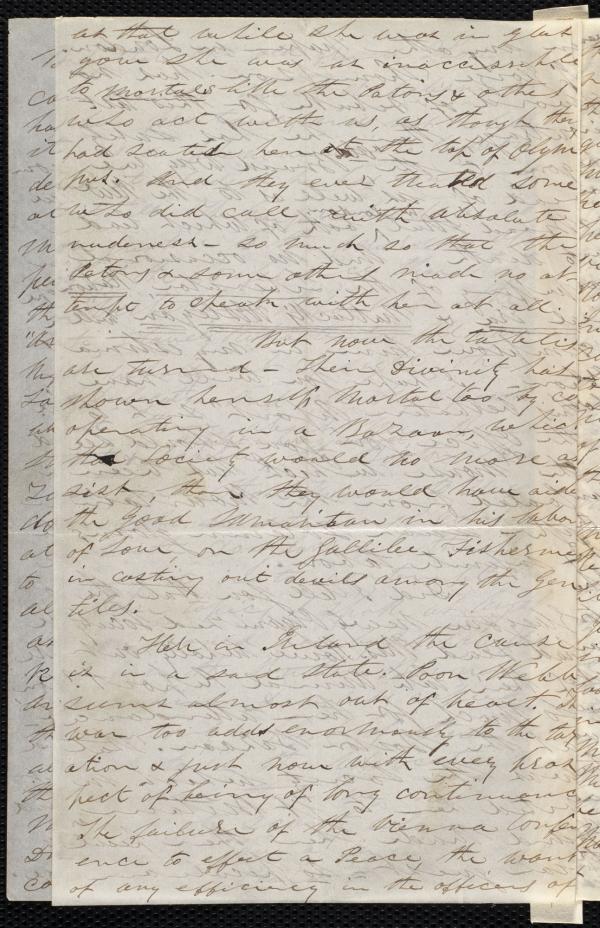 at that while she was in Glas
gow she was as inaccessible
to mortals like the Patons & others
who act with us, as though they
had seated her at the top of Olym
pus. And they even treated some
who did call with absolute
rudeness – so much so that the
Patons & some others made no at
tempt to speak with her at all.
But now the tables
are turned – Their Divinity has
shown herself Mortal too by co
operating in a Bazaar, which
that Society would no more as
sist, than they would have aided
the Good Samaritan in his labor
of Love or the Gallilee Fishermen
in casting out devils among the Gen
tiles.
Here in Ireland the cause
is in a sad state. Poor Webb
seems almost out of heart.
war too adds enormously to the tax
ation & just now with every pros
pect of being of long continuance
The failure of the Vienna Confer
ence to effect a Peace, the want
of any efficiency in the officers of